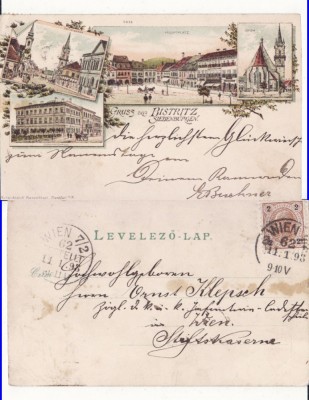 GRUSS AUS BISTRITZ
SIEBENBÜRGEN.
die herzlichsten Glückwünsche
zum Namenstage von
Deinem Kameraden
LEVELEZŐ-LAP.
WIEN 7/2
62
11.1.98
2 2
WIEN
62
11.1.98
9 10V
Hochwohlgeboren
Herrn Ernst Klepsch
Zögl. d. k. u. k. Infanterie-Cadetten
schule
in Wien.
Stiftskaserne